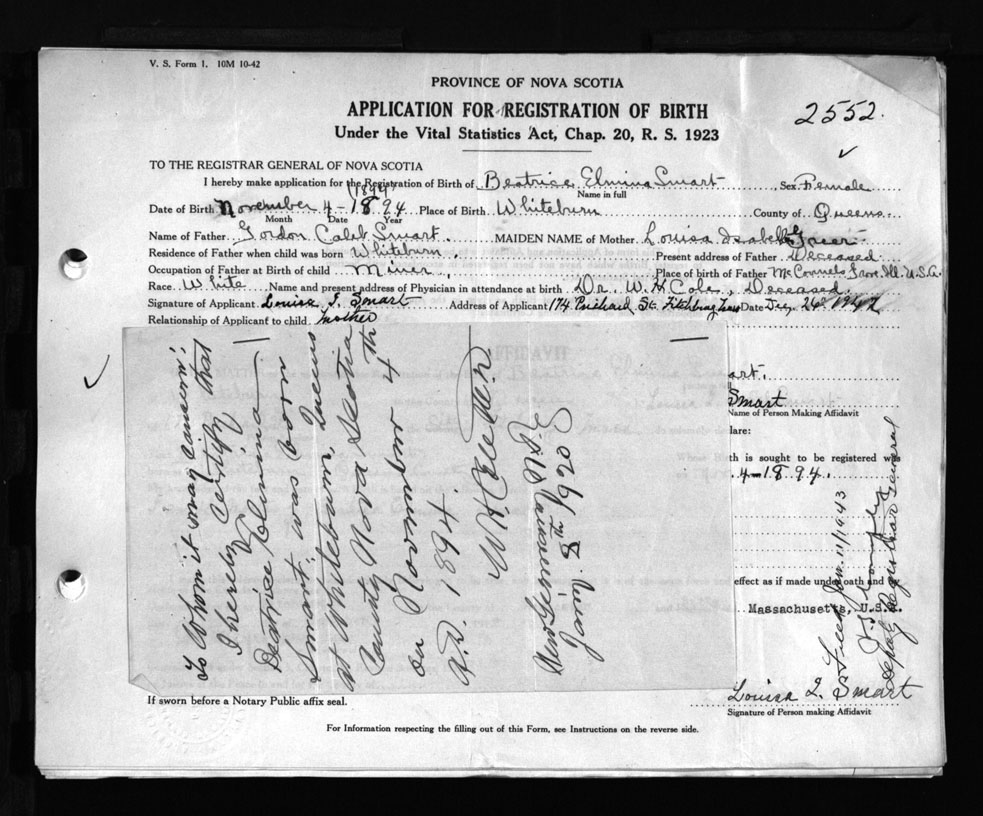 V. S. Form 1. 10M 10-42
PROVINCE OF NOVA SCOTIA
APPLICATION FOR REGISTRATION OF BIRTH
Under the Vital Statistics Act, Chap. 20, R. S. 1923
2552.
TO THE REGISTRAR GENERAL OF NOVA SCOTIA
I hereby make application for the Registration of Birth of Beatrice Elmina Smart Sex Female
Name in full
(1894)
Date of Birth November 4-1894 Place of Birth Whiteburn County of Queens
Month Date Year
Name of Father Gordon Caleb Smart MAIDEN NAME of Mother Louisa Isabelle Freer
Residence of Father when child was born Whiteburn Present address of Father Deceased
Occupation of Father at Birth of child Miner Place of birth of Father Ill. U.S.A.
Race White Name and present address of Physician in attendance at birth Dr. W. H. Cole, Deceased
Signature of Applicant Louisa I. Smart Address of Applicant 174 Prichard St. Fitchburg Mass Date 26 1942
Relationship of Applicant to child Mother
To Whom it may concern;
I hereby certify that
Beatrice Elmina
Smart was born
at Whiteburn, Queens
County Nova Scotia
on November 4th
A.D. 1894.
New Germany N.S.
Jan. 8th 1920
AFFIDAVIT
art.
Smart
Name of Person Making Affidavit
lare:
th is sought to be registered was
4-1894.
effect as if made under oath and by
Massachusetts, U.S.A.
Filed Jan. 11/1943
Deputy Registrar General
If sworn before a Notary Public affix seal.
Louisa I. Smart
Signature of Person making Affidavit
For Information respecting the filling out of this Form, see Instructions on the reverse side.